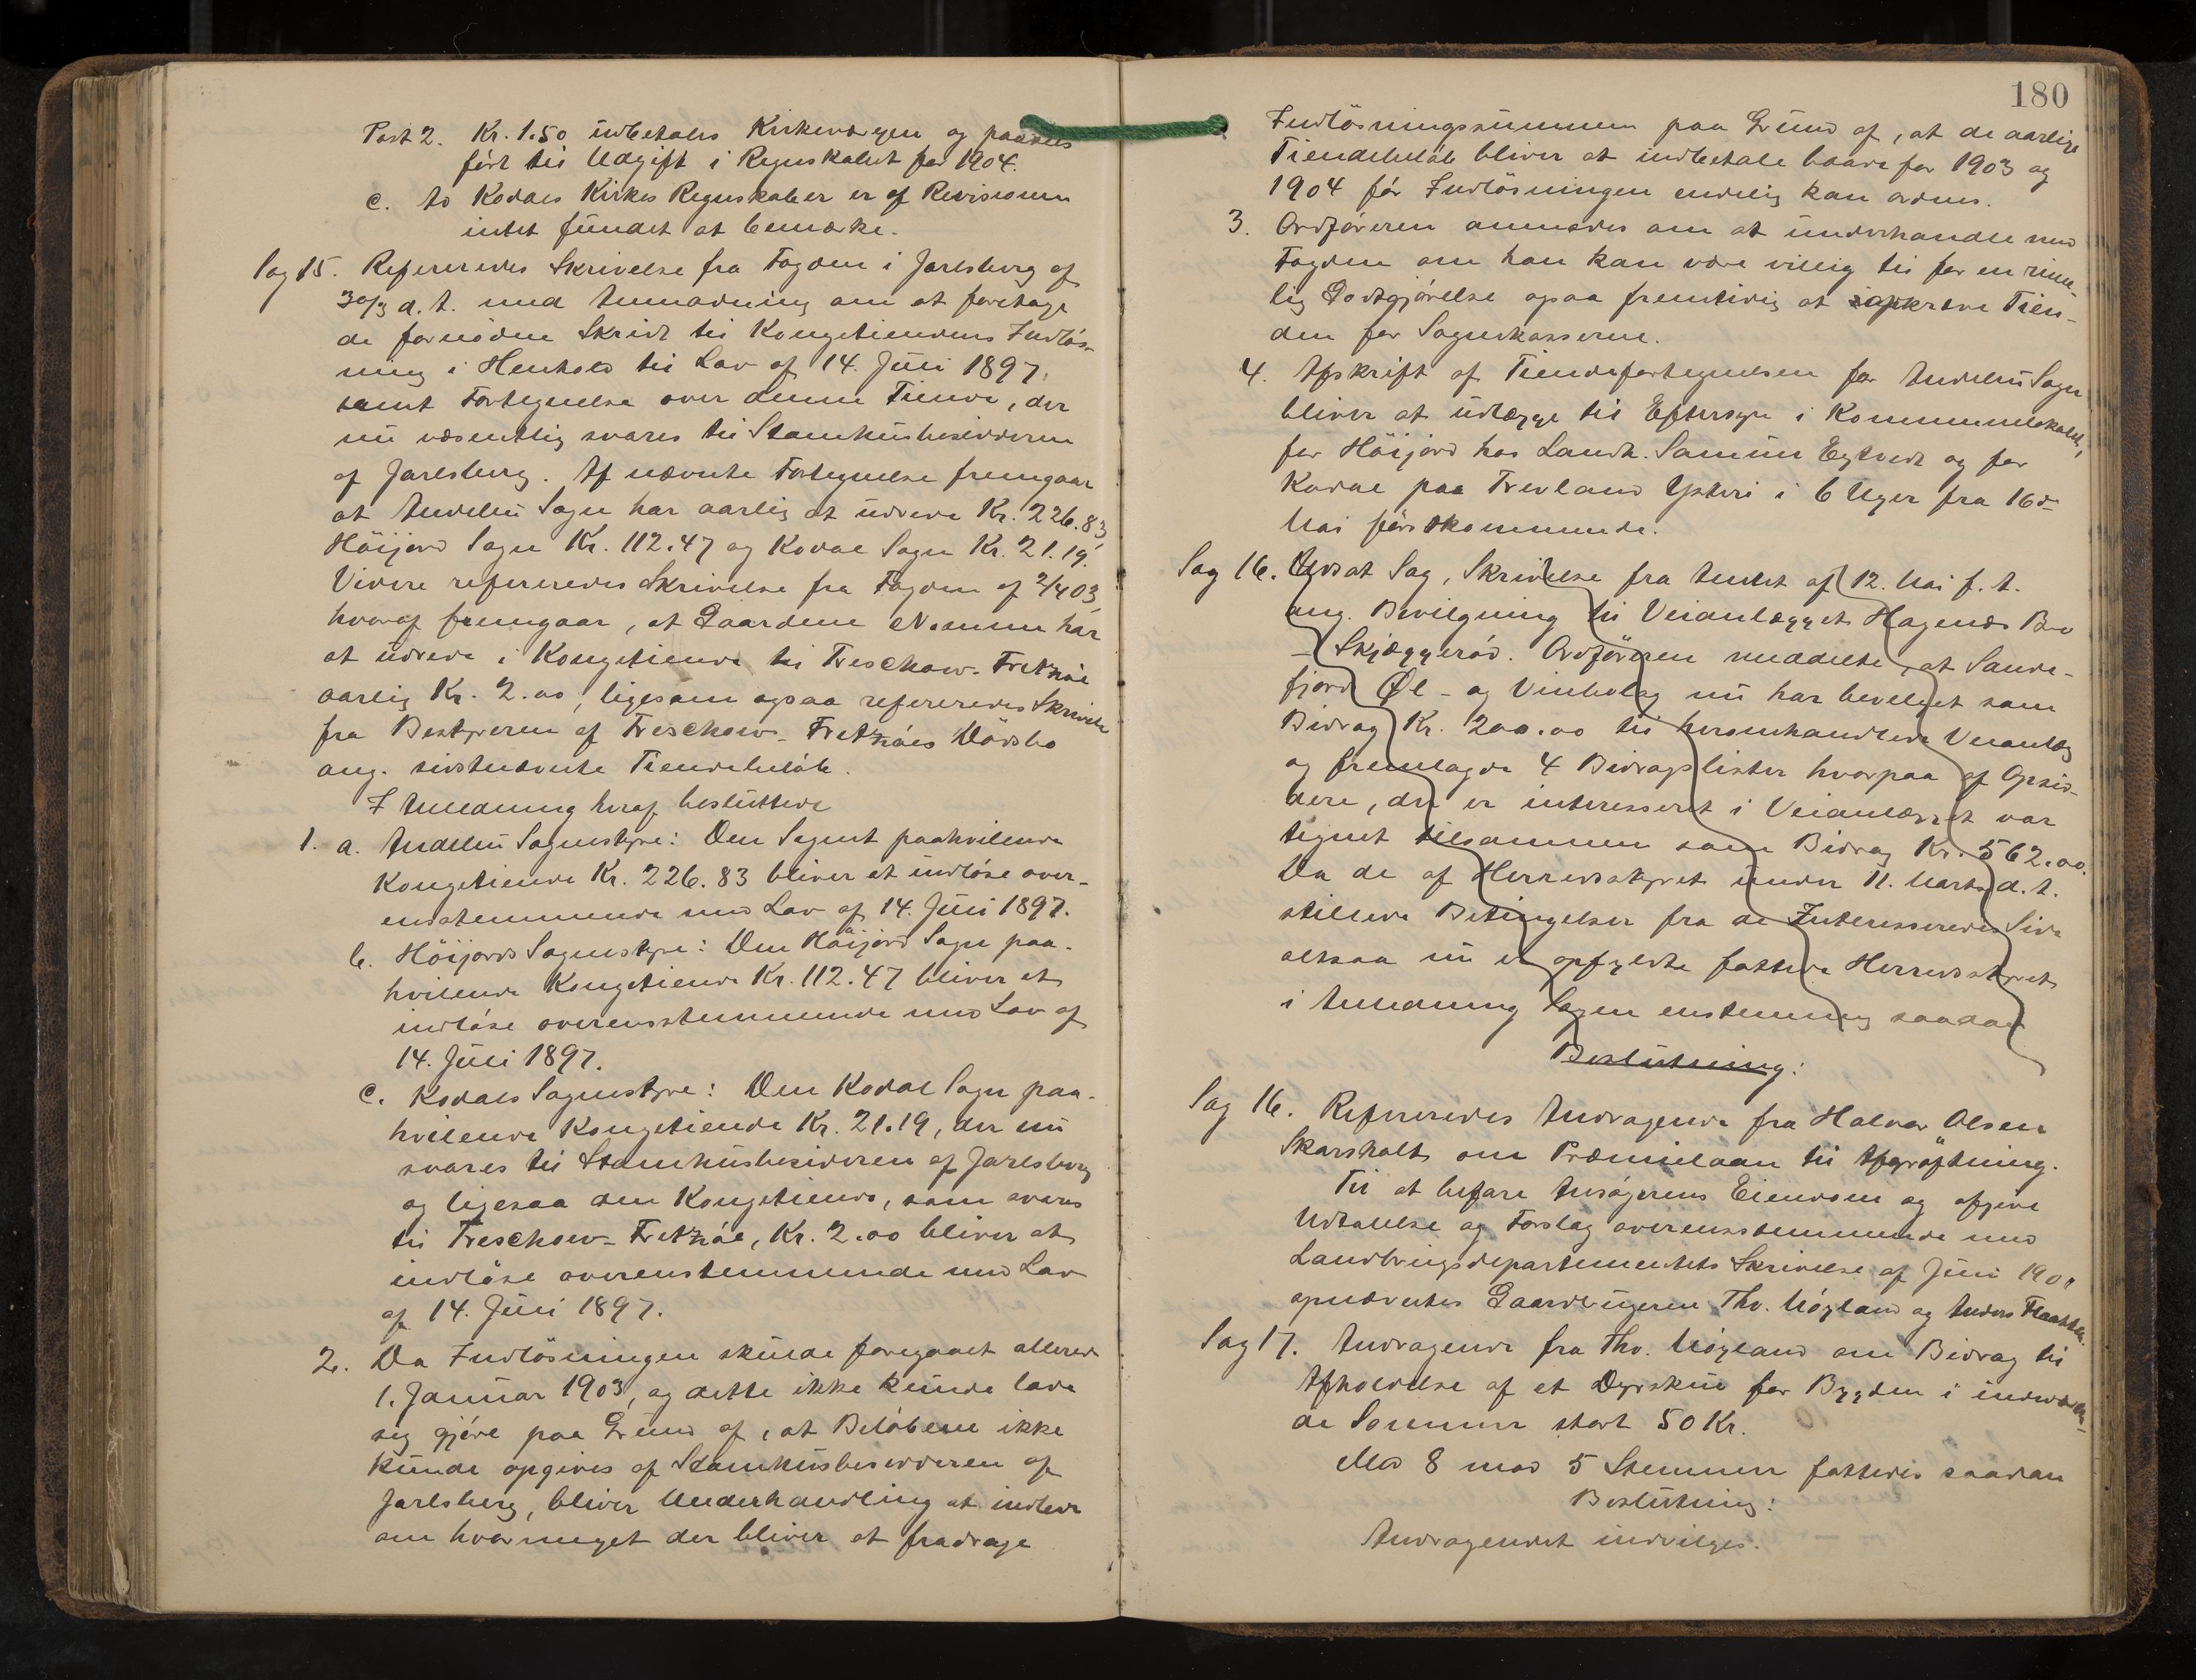 Post 2. Kr. 1.50 indbetales Kirkeværgen og paasees
ført til Udgift i Regnskabet for 1904.
c. To Kodals Kirkes Regnskaber er af Revisionen
intet fundet at bemærke.
Sag 15. Refereredes Skrivelse fra Fogden i Jarlsberg af
30/3 d. A. med Anmodning om at foretage
de fornødne Skridt til Kongetiendens Indløs-
ning i Henhold til Lov af 14. Juli 1897,
samt Fortegnelse over denne Tiende, der
nu væsentlig svares til Stamhusbesidderen
af Jarlsberg. Af nævnte Fortegnelse fremgaar
at Andebu Sogn har aarlig at udrede Kr. 226.83,
Höijord Sogn Kr. 112.47 og Kodal Sogn Kr. 21.19.
Videre refereredes Skrivelse fra Fogden af 2/4 03,
hvoraf fremgaar, at Gaardene Nommen har
at udrede i Kongetiende til Treschow-Fritzøe
aarlig Kr. 2.00, ligesom ogsaa refereredes Skrivelse
fra Bestyreren af Treschow-Fritzøes Dødsbo
ang. sidstnævnte Tiendebeløb.
I Anledning heraf besluttede
1. a. Andebu Sognestyre: Den Sognet paahvilende
Kongetiende Kr. 226.83 bliver at indløse over-
ensstemmende med Lov af 14. Juli 1897.
b. Höijords Sognestyre: Den Höijord Sogn paa-
hvilende Kongetiende Kr. 112.47 bliver at
indløse overensstemmende med Lov af
14. Juli 1897.
c. Kodals Sognestyre: Den Kodal Sogn paa-
hvilende Kongetiende Kr. 21.19, der nu
svares til Stamhusbesidderen af Jarlsberg
og ligesaa den Kongetiende, som svares
til Treschow-Fritzøe, Kr. 2.00 bliver at
indløse overenstemmende med Lov
af 14. Juli 1897.
2. Da Indløsningen skulde foregaaet allerede
1. Januar 1903, og dette ikke kunde lade
sig gjøre paa Grund af, at Beløbene ikke
kunde opgives af Stamhusbesidderen af
Jarlsberg, bliver Underhandling at indlede
om hvormeget der bliver at fradrage
180
Indløsningssummen paa Grund af, at de aarlige
Tiendebeløb bliver at indbetale baade for 1903 og
1904 før Indløsningen endelig kan ordnes.
3. Ordføreren anmodes om at underhandle med
Fogden om han kan være villig til for en rime-
lig Godtgjørelse ogsaa fremtidig at opkræve Tien-
den for Sognekasserne.
4. Afskrift af Tiendefortegnelsen for Andebu Sogn
bliver at udlægge til Eftersyn i Kommunelokalet,
for Höijord hos Landh. Samuu Eytvedt og for
Kodal paa Trevland Ysteri i 6 Uger fra 16de
Mai førstkommende.
Sag 16. Udsat Sag, Skrivelse fra Amtet af 12. Mai f. A.
ang. Bevilgning til Veianlægget Hagenæs Bro
- Skjæggerød. Ordføreren meddelte, at Sande-
fjord Øl- og Vinbolag nu har bevilget som
Bidrag Kr. 200.00 til heromhandlede Veianlæg
og fremlagde 4 Bidragslister hvorpaa af Opsid-
dere, der er interesseret i Veianlægget var
tegnet tilsammen som Bidrag Kr. 562.00.
Da de af Herredsstyret under 11. Marts d. A.
stillede Betingelser fra de Interesseredes Side
altsaa nu er opfyldte fattede Herredsstyret
i Anledning Sagen enstemmig saadan
Beslutning:
Sag 16. Refereredes Andragende fra Halvor Olsen
Skarsholt om Præmielaan til Afgrøftning.
Til at befare Ansøgerens Eiendom og afgive
Udtalelse og Forslag overensstemmende med
Landbrugsdepartementets Skrivelse af Juni 1901
opnævntes Gaardbrugerne Thv. Møyland og Anders
Sag 17. Andragende fra Thv. Møyland om Bidrag til
Afholdelse af et Dyrskue for Bygden i indeværen-
de Sommer stort 50 Kr.
Med 8 mod 5 Stemmer fattedes saadan
Beslutning:
Andragendet indvilges.